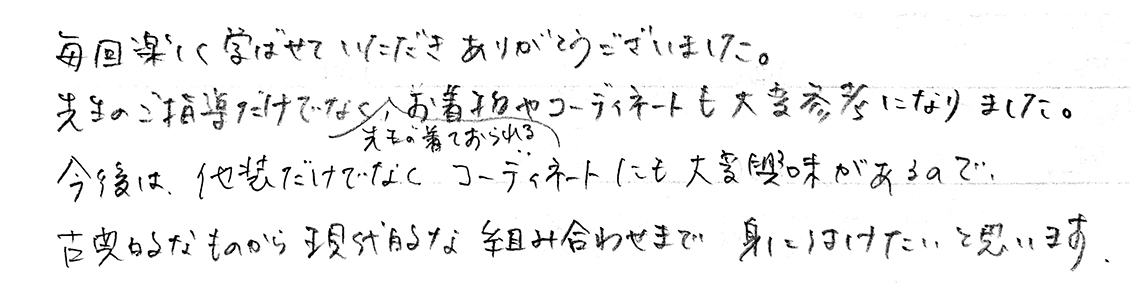 毎回楽しく学ばせていただきありがとうございました。
先生のご指導だけでなく、お着物やコーディネートも大変参考になりました。
先生の着ておられる
今後は、他装だけでなくコーディネートにも大変興味があるので、
古典的なものから現代的な組み合わせまで身につけたいと思います.